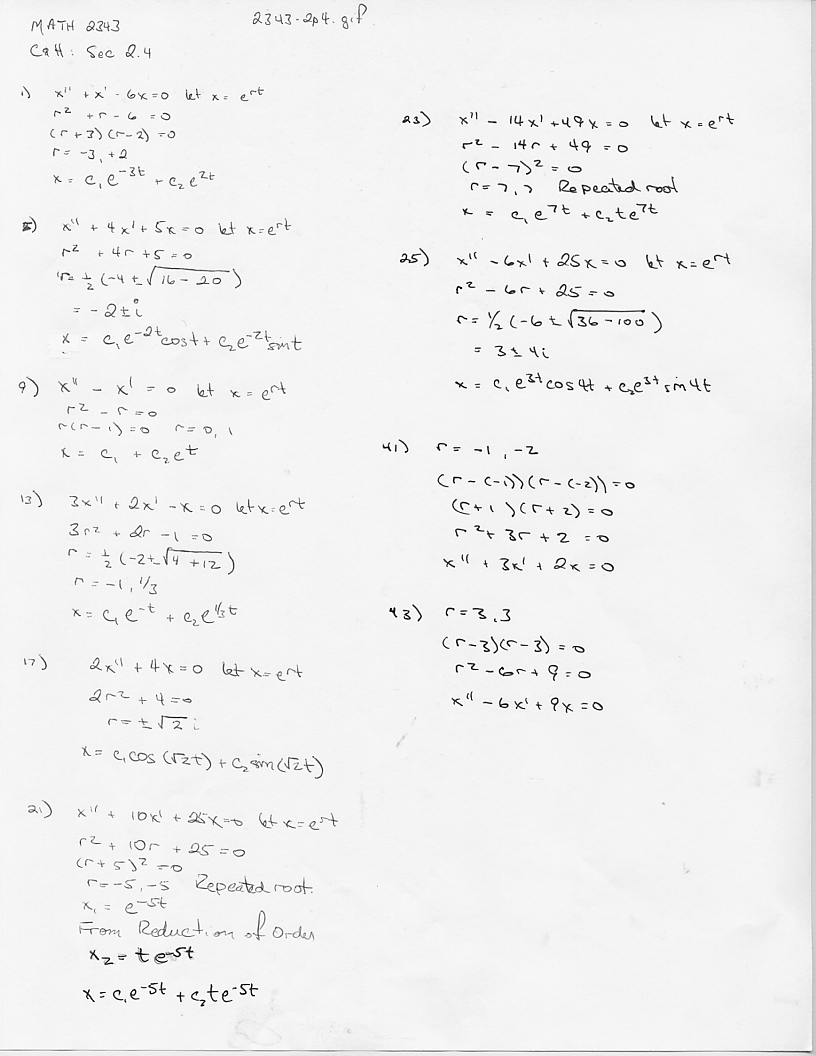 MATH 2343
2343-2p4.gif
C&H: Sec 2.4
1) x'' + x' - 6x = 0 let x = e^rt
r² + r - 6 = 0
(r + 3)(r - 2) = 0
r = -3, +2
x = c₁e^-3t + c₂e^2t
x'' + 4x' + 5x = 0 let x = e^rt
r² + 4r + 5 = 0
r = ½ (-4 ± √(16 - 20))
= -2 ± i
x = c₁e^-2t cos t + c₂e^-2t sin t
9) x'' - x' = 0 let x = e^rt
r² - r = 0
r(r - 1) = 0 r = 0, 1
x = c₁ + c₂e^t
13) 3x'' + 2x' - x = 0 let x = e^rt
3r² + 2r - 1 = 0
r = ½ (-2 ± √(4 + 12))
r = -1, 1/3
x = c₁e^-t + c₂e^1/3t
17) 2x'' + 4x = 0 let x = e^rt
2r² + 4 = 0
r = ± √2 i
x = c₁cos(√2t) + c₂sin(√2t)
21) x'' + 10x' + 25x = 0 let x = e^rt
r² + 10r + 25 = 0
(r + 5)² = 0
r = -5, -5 Repeated root.
x₁ = e^-5t
From Reduction of Order
x₂ = te^-5t
x = c₁e^-5t + c₂te^-5t
23) x'' - 14x' + 49x = 0 let x = e^rt
r² - 14r + 49 = 0
(r - 7)² = 0
r = 7, 7 Repeated root
x = c₁e^7t + c₂te^7t
25) x'' - 6x' + 25x = 0 let x = e^rt
r² - 6r + 25 = 0
r = 1/2 (-6 ± √(36 - 100))
= 3 ± 4i
x = c₁e^3t cos 4t + c₂e^3t sin 4t
41) r = -1, -2
(r - (-1))(r - (-2)) = 0
(r + 1)(r + 2) = 0
r² + 3r + 2 = 0
x'' + 3x' + 2x = 0
43) r = 3, 3
(r - 3)(r - 3) = 0
r² - 6r + 9 = 0
x'' - 6x' + 9x = 0